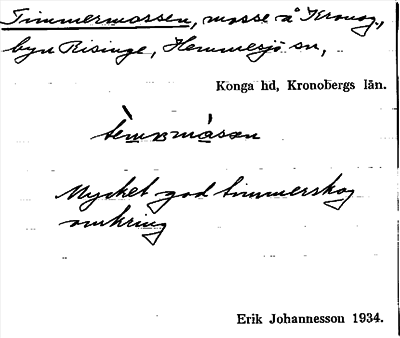 Timmermossen, mosse å Kronog.,
byn Risinge, Hemmesjö sn,
Konga hd, Kronobergs län.
Mycket god timmerskog
omkring
Erik Johannesson 1934.